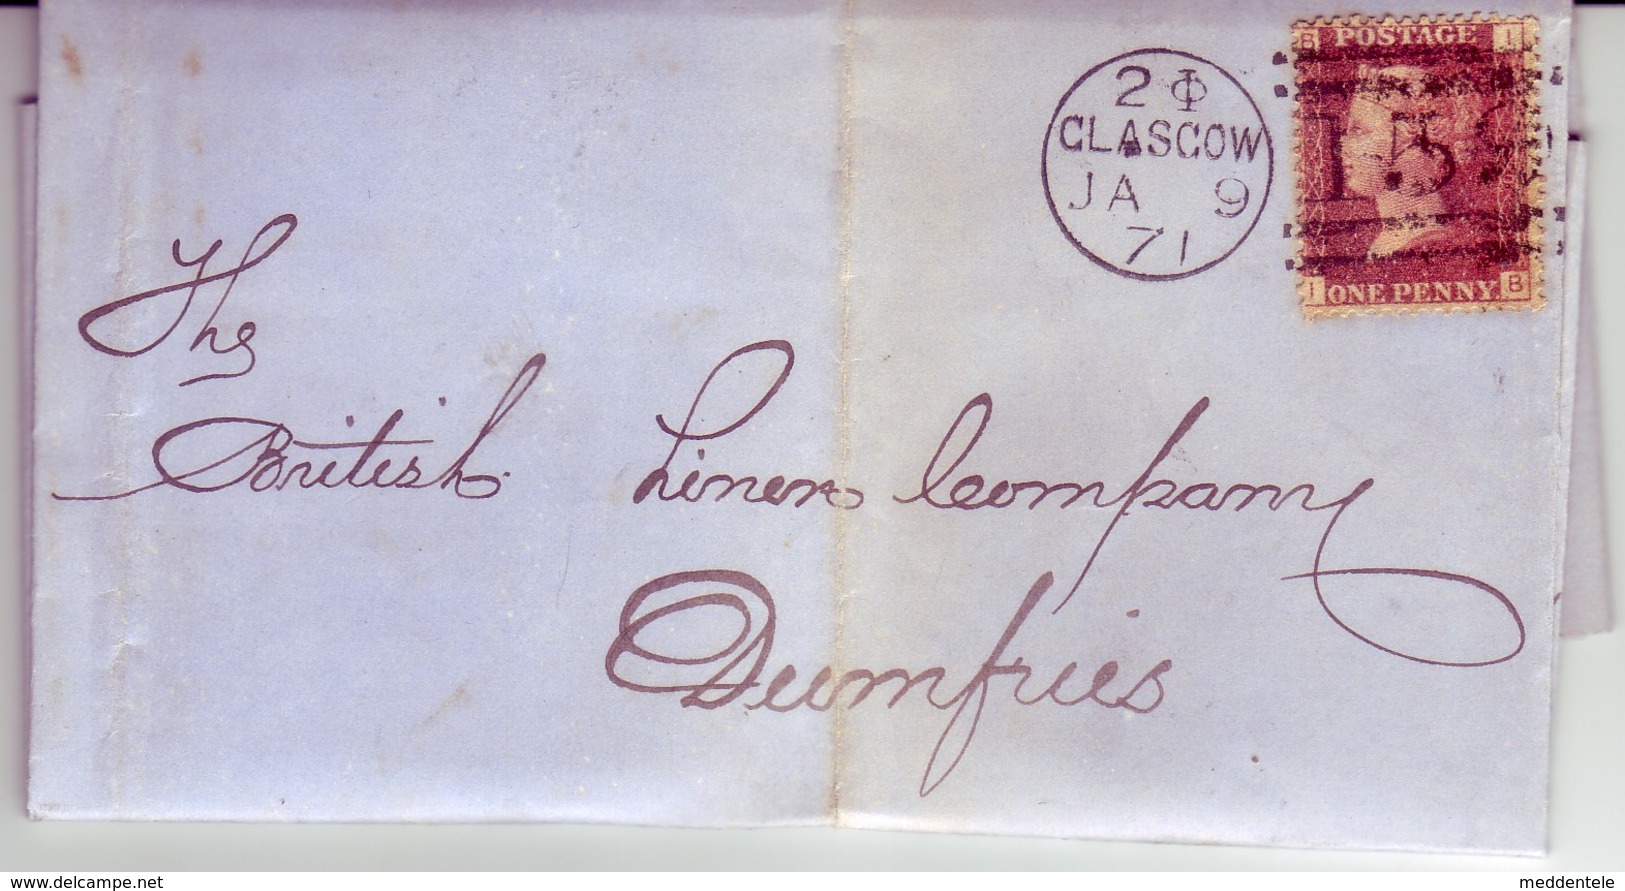 2 Φ
GLASGOW
JA 9
71
B I
POSTAGE
159
I B
ONE PENNY
The
British Linen Company
Dumfries
www.delcampe.net
meddentele